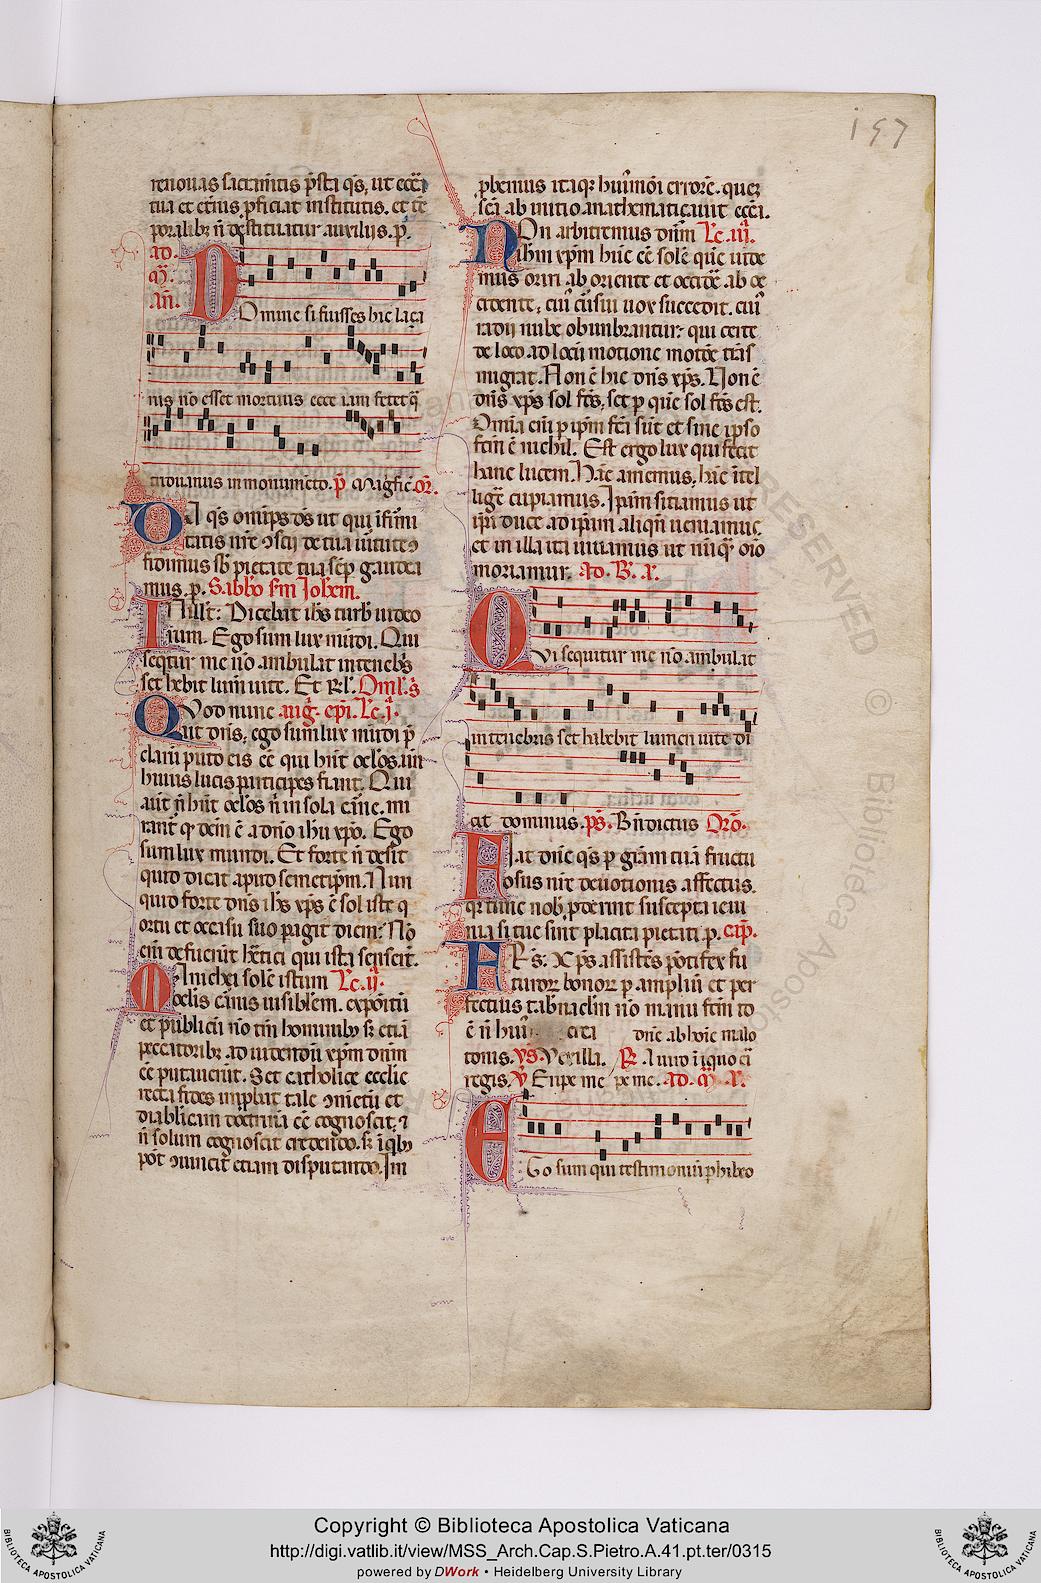 i57
renouas sacram̄tis p̄sta q̄s, ut
tua et et̄nis p̄ficiat institutis. et tē
poralibꝫ n̄ destituatur auxilijs. p̄.
ad.
m̄.
an̄.
Omine si fuisses hic laça
rus nō esset mortuus ecce iam fetet q̄
triduanus in monumēto. p̄ Magfic̄. or̄.
A q̄s om̄ps d̄s ut qui īfirmi
tatis nr̄e ↄscij de tua uirtute ↄ
fidimus sb̄ pietate tua sēp gaudea
mus. p. Sabb̄o sm̄ Joh̄em.
N illꝰ: Dicebat ih̄s turb̄ iudeo
rum. Ego sum lux mūdi. Qui
seq̄tur me nō ambulat in teneb̄s
set h̄ebit lum̄ uite. Et Rl̄. Oml̄. s̄.
Vod nunc auḡ. ep̄i. Lc̄. j.
ait dn̄s, ego sum lux mūdi p̄
clarū puto eis eē qui hn̄t oc̄los. un̄
huius lucis participes fiant. Qui
aūt n̄ hn̄t oc̄los n̄ in sola carne. mi
rant̄ qꝫ dc̄m ē a dn̄o ih̄u xp̄o. Ego
sum lux mundi. Et forte n̄ desit
quid dicat apud semetip̄m. Nun
quid forte dn̄s ih̄s xp̄s ē sol iste q̄
ortu et occasu suo pagit diem? Nō
em̄ defuer̄ūt h̄etici qui ista senser̄t.
Anichei solē istum Lc̄. ij.
oc̄lis carnis uisiblem. expositū
et publicū nō tm̄ hominibꝫ sꝫ etiā
peccatoribꝫ ad uidendū xp̄m dn̄m
eē putauer̄t. Set catholice ecclie
recta fides imp̄bat tale ↄm̄etū et
diablicam doctrinā eē cognoscit. ⁊
n̄ solum cognoscit credendo. sꝫ ī q̄bꝫ
pōt ↄuincit etiam disputando. Im
p̄bemus itaqꝫ huiꝰmōi errorē. quē
sc̄a ab initio anathematicauit ecc̄a.
On arbitremur dn̄m Lc̄. iij.
ih̄m xp̄m hūc eē solē quē uide
mus oriri ab oriente et occidē̄ ab oc
cidente, cuiꝰ cursui nox succedit. cuiꝰ
radij nube obumbrantur: qui certe
de loco ad locū motione motꝰ trās
migrat. Non ē hic dn̄s xp̄s. Non ē
dn̄s xp̄s sol fc̄s, set p quē sol fc̄s est.
Omia em̄ p ip̄m fc̄a sūt et sine ipso
fc̄m ē nichil. Est ergo lux qui fecit
hanc lucem. Hāc amemus, hāc ītel
ligē cupiamus. Ip̄am sitiamus ut
ip̄a duce ad ip̄am aliqn̄ ueniamus,
et in illa ita uiuamus ut nūqꝫ oīo
moriamur. Ad. B. A.
Vi sequitur me nō ambulat
in tenebris set habebit lumen uite di
cit dominus. ps̄. Bn̄dictus Orō.
at dn̄e q̄s p gr̄am tuā fructu
osus nr̄e deuotionis affectus.
qꝫ tunc nob̄ p̄derūt suscepta ieiu
nia si tue sint placita pietati. p. cap̄.
R̄s: Xp̄s assistēs pōtifex fu
turoꝝ bonoꝝ p ampliꝰ et per
fectius tab̄naclm̄ nō manu fc̄m id
ē n̄ huiꝰ dn̄e ab hoīe malo
tionis. V̄s. Vexilla. R̄. A uiro iniquo eī
regis. V̄ Eripe me pe me. Ad. M̄. A.
Go sum qui testimoniū p̄hibeo
RESERVED
© Biblioteca Apostolica
BIBLIOTECA APOSTOLICA VATICANA
Copyright © Biblioteca Apostolica Vaticana
http://digi.vatlib.it/view/MSS_Arch.Cap.S.Pietro.A.41.pt.ter/0315
powered by DWork • Heidelberg University Library
BIBLIOTECA APOSTOLICA VATICANA